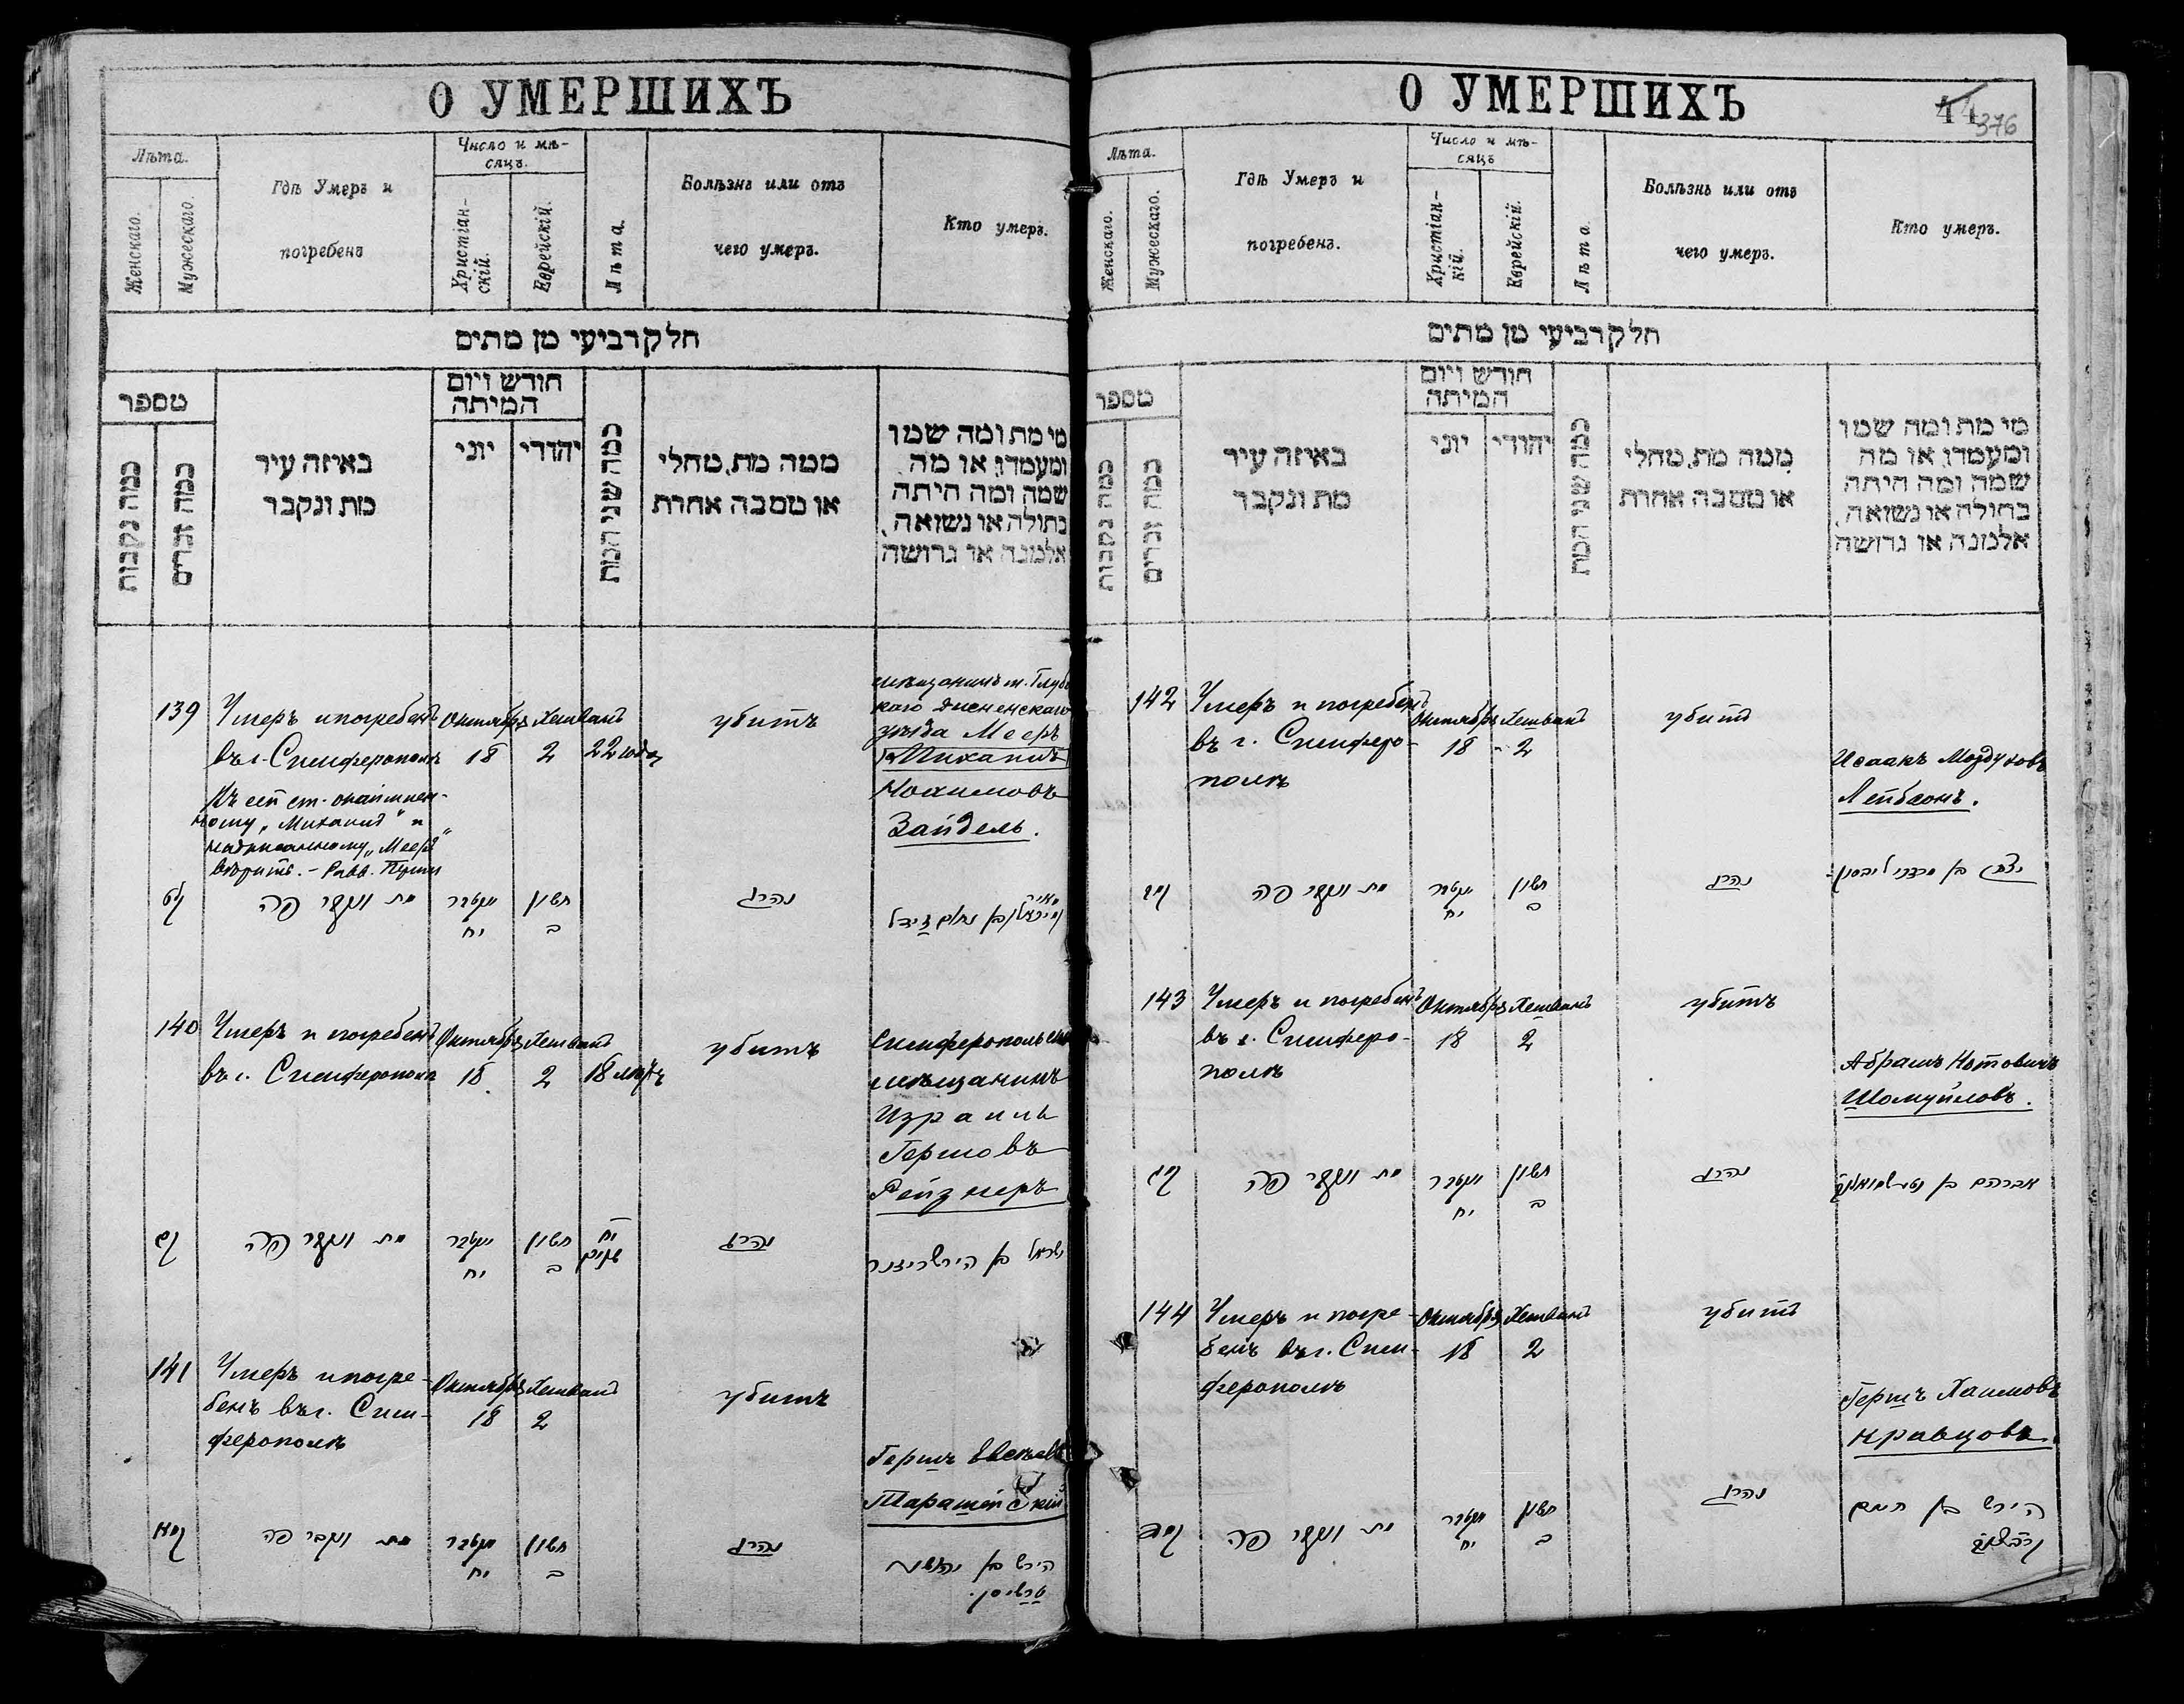 О УМЕРШИХЪ
Лѣта.
Женскаго.
Мужескаго.
Гдѣ Умеръ и
погребенъ
Число и мѣ-
сяцъ.
Христіан-
скій.
Еврейскій.
Лѣта.
Болѣзнь или отъ
чего умеръ.
Кто умеръ.
חלק רביעי מן מתים
מספר
כמה נקבות
כמה זכרים
באיזה עיר
מת ונקבר
חודש ויום
המיתה
יוני
יהודי
כמה שני המת
ממה מת, מחלי
או מסבה אחרת
מי מת ומה שמו
ומעמדו, או מה
שמה ומה היתה
בתולה או נשואה,
אלמנה או גרושה
139
Умеръ и погребенъ
въ г. Симферополѣ
Октябрь
18
Хешванъ
2
22 года
убитъ
мѣщанинъ м. Глубо
каго Дисненскаго
уѣзда Мееръ
Михаилъ
Нохимовъ
Зайдель.
"Михаилъ" и
надписанному "Мееръ"
вѣрить. – Равв.
מת ונקבר פה
יח
חשון
ב
נהרג
140
Умеръ и погребенъ
въ г. Симферополѣ
Октябрь
18
Хешванъ
2
18 лѣтъ
убитъ
мѣщанинъ
Израиль
Гершовъ
Рейзнеръ
מת ונקבר פה
יח
חשון
ב
יח
שנים
נהרג
ישראל בן הירש ריזנר
141
Умеръ и погре-
бенъ въ г. Сим-
ферополѣ
Октябрь
18
Хешванъ
2
убитъ
Гершъ
מת ונקבר פה
יח
חשון
ב
נהרג
О УМЕРШИХЪ
44
376
Лѣта.
Женскаго.
Мужескаго.
Гдѣ Умеръ и
погребенъ.
Число и мѣ-
сяцъ
Христіан-
кій.
Еврейскій.
Лѣта.
Болѣзнь или отъ
чего умеръ.
Кто умеръ.
חלק רביעי מן מתים
מספר
כמה נקבות
כמה זכרים
באיזה עיר
מת ונקבר
חודש ויום
המיתה
יוני
יהודי
כמה שני המת
ממה מת, מחלי
או מסבה אחרת
מי מת ומה שמו
ומעמדו, או מה
שמה ומה היתה
בתולה או נשואה,
אלמנה או גרושה
142
Умеръ и погребенъ
въ г. Симферо-
полѣ
Октябрь
18
Хешванъ
2
убитъ
Исаакъ Мордуховъ
Лейбсонъ.
מת ונקבר פה
יח
חשון
ב
נהרג
143
Умеръ и погребенъ
въ г. Симферо-
полѣ
Октябрь
18
Хешванъ
2
убитъ
Абрамъ Нотовичъ
Шомуйловъ.
מת ונקבר פה
יח
חשון
ב
נהרג
144
Умеръ и погре-
бенъ въ г. Сим-
ферополѣ
Октябрь
18
Хешванъ
2
убитъ
Гершъ Хаимовъ
Кравцовъ.
מת ונקבר פה
יח
חשון
ב
נהרג
הירש בן חיים